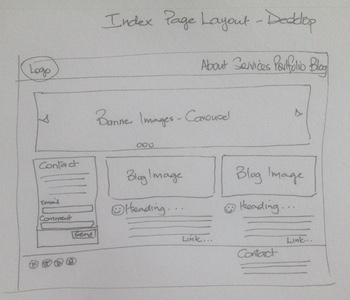 Index Page Layout - Desktop
Logo
About Services Portfolio Blog
Banner Images - Carousel
Contact
Email
Comment
Send
Blog Image
Heading...
Link...
Blog Image
Heading...
Link...
Contact